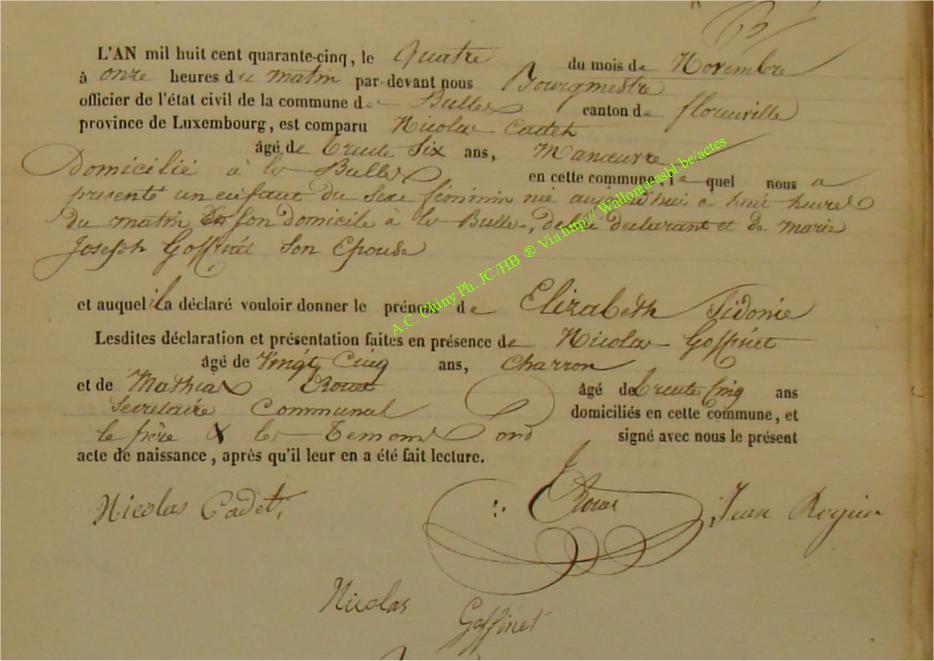 L'AN mil huit cent quarante-cinq, le Quatre du mois de Novembre
à onze heures du matin par-devant nous Bourgmestre
officier de l'état civil de la commune de Bulles canton de florenville
province de Luxembourg, est comparu Nicolas Cadet
âgé de trente Six ans, Manœuvre
Domicilié à les Bulles en cette commune, le quel nous a
présenté un enfant du Sexe féminin née aujourd'hui à huit heures
du matin En son domicile à les Bulles, de lui déclarant et de marie
Joseph Goffinet Son Epouse
et auquel il a déclaré vouloir donner le prénom de Elizabeth Sidonie
Lesdites déclaration et présentation faites en présence de Nicolas Goffinet
âgé de Vingt Cinq ans, Charron
et de Mathias âgé de trente Cinq ans
Secretaire Communal domiciliés en cette commune, et
le père & les Temoins Ond signé avec nous le présent
acte de naissance, après qu'il leur en a été fait lecture.
Nicolas Cadet, Jean
Nicolas Goffinet
A.C. Chiny Ph. JC /HB ® Via http:// Wallonia-asbl.be/actes